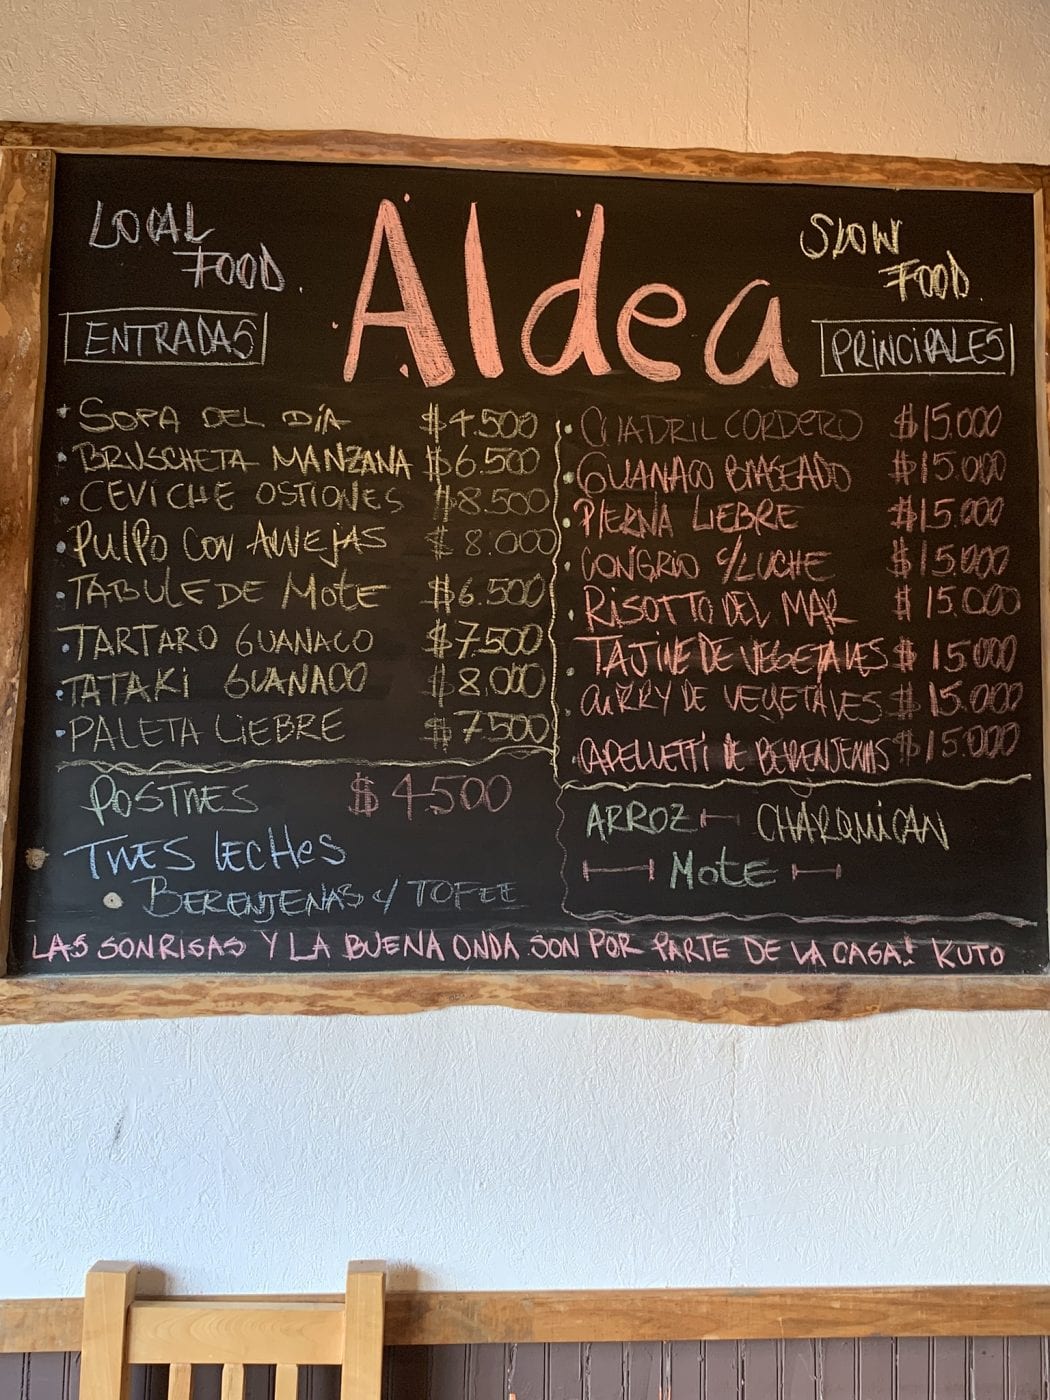 LOCAL
FOOD.
Aldea
SLOW
FOOD.
ENTRADAS
SOPA DEL DÍA $4.500
BRUSCHETA MANZANA $6.500
CEVICHE OSTIONES $8.500
PULPO CON ALVEJAS $8.000
TABULE DE MOTE $6.500
TARTARO GUANACO $7.500
TATAKI GUANACO $8.000
PALETA LIEBRE $7.500
POSTRES $4.500
TRES LECHES
BERENJENAS c/ TOFEE
PRINCIPALES
CUADRIL CORDERO $15.000
GUANACO BRASEADO $15.000
PIERNA LIEBRE $15.000
CONGRIO c/LUCHE $15.000
RISOTTO DEL MAR $15.000
TAJINE DE VEGETALES $15.000
CURRY DE VEGETALES $15.000
CAPELLETTI DE BERENJENAS $15.000
ARROZ CHARQUICAN
MOTE
LAS SONRISAS Y LA BUENA ONDA SON POR PARTE DE LA CASA! KUTO